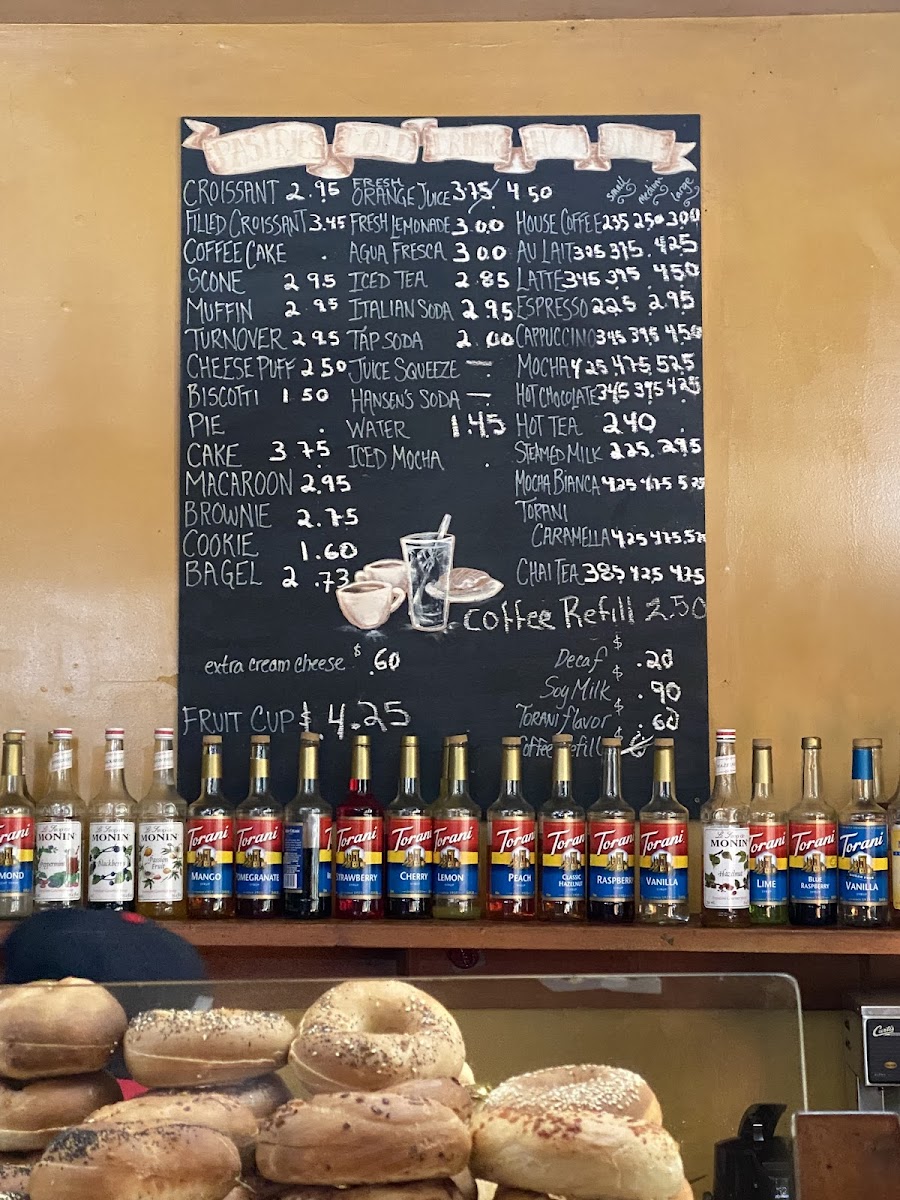 PASTRIES COLD DRINKS HOT DRINKS
CROISSANT 2.95
FILLED CROISSANT 3.45
COFFEE CAKE .
SCONE 2 95
MUFFIN 2.95
TURNOVER 2 95
CHEESE PUFF 2 50
BISCOTTI 1 50
PIE .
CAKE 3 75
MACAROON 2.95
BROWNIE 2.75
COOKIE 1.60
BAGEL 2.73
FRESH
ORANGE JUICE 3.75 4 50
FRESH LEMONADE 3.00
AGUA FRESCA 3 00
ICED TEA 2.85
ITALIAN SODA 2.95
TAP SODA 2.00
JUICE SQUEEZE —
HANSEN'S SODA —
WATER 1.45
ICED MOCHA .
small medium large
HOUSE COFFEE 235 250 300
AU LAIT 325 375 .425
LATTE 345 395 .450
ESPRESSO 225 2.95
CAPPUCCINO 345 395 450
MOCHA 425 475 525
HOT CHOCOLATE 345 395 425
HOT TEA 240 .
STEAMED MILK 225. 295
MOCHA BIANCA 425 475 525
TORANI
CARAMELLA 425 475 525
CHAI TEA 385 425 475
coffee Refill 2.50
extra cream cheese $ .60
FRUIT CUP $ 4.25
Decaf $ .20
Soy Milk $ .90
TORANI flavor $ .60
Coffee Refill
MOND
MONIN
Peppermint
MONIN
Blackberry
MONIN
Passion Fruit
Torani
MANGO
Torani
POMEGRANATE
Torani
STRAWBERRY
Torani
CHERRY
Torani
LEMON
Torani
PEACH
Torani
CLASSIC
HAZELNUT
Torani
RASPBERRY
Torani
VANILLA
MONIN
Hazelnut
Torani
LIME
Torani
BLUE
RASPBERRY
Torani
VANILLA
Curtis